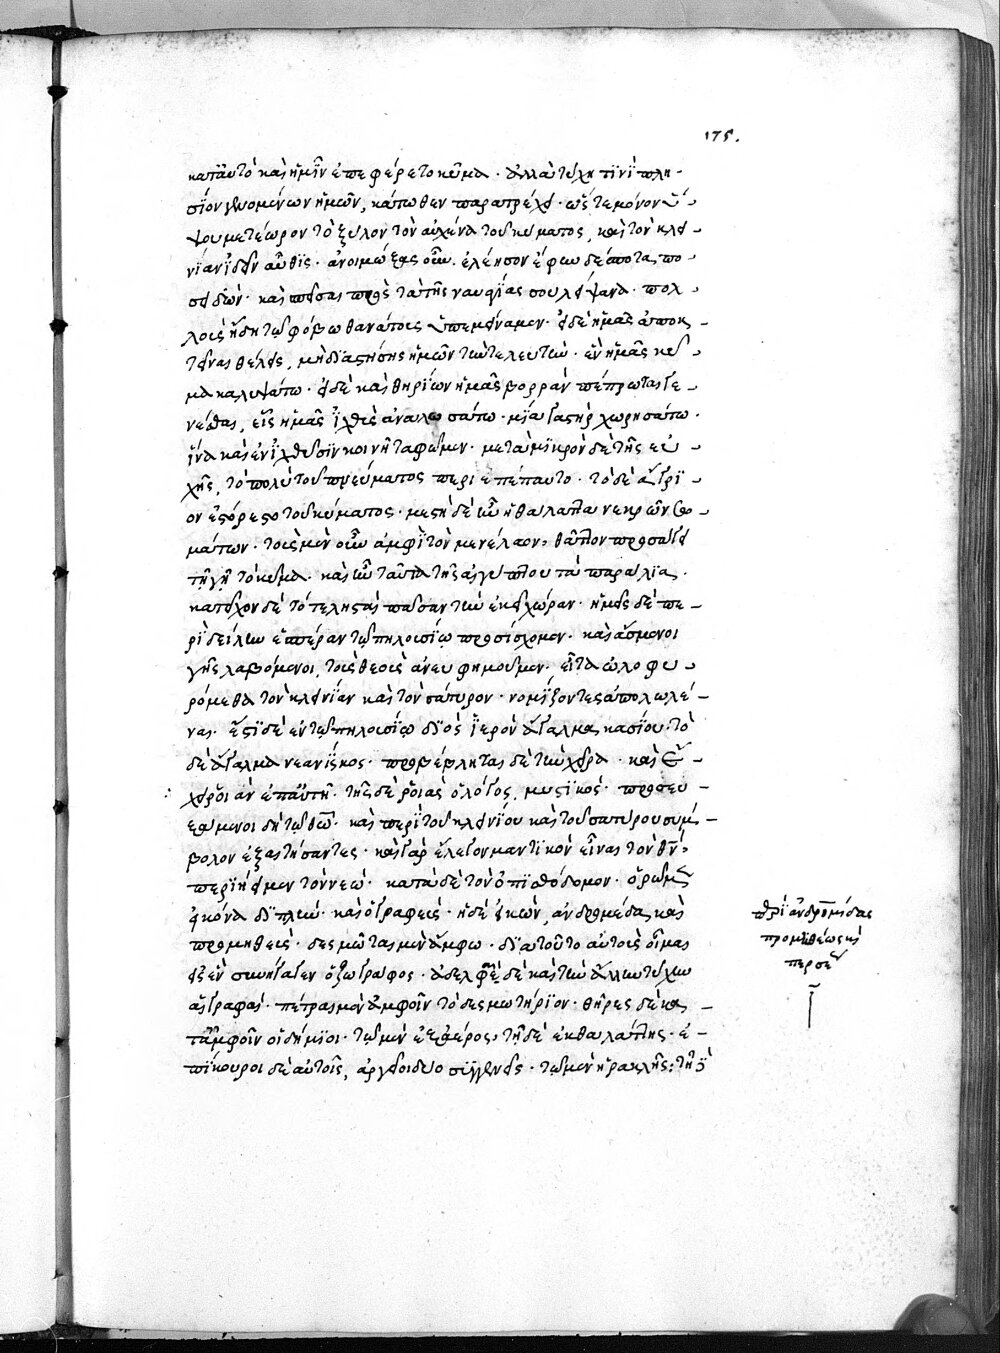 175.
κατ' αὐτὸ καὶ ἡμῖν ἐπεφέρετο κῦμα· ἀλλὰ τύχη τινὶ πλη-
σίον γενομένων ἡμῶν, κάτωθεν παρατρέχει· ὥστε μόνον ὑ-
ψου μετέωρον τὸ ξύλον τὸν αὐχένα τοῦ κύματος, καὶ τὸν κλει-
νίαν ἰδεῖν αὖθις· ἀνοιμώξας οὖν. ἐλέησον ἔφην δέσποτα πο-
σειδῶν· καὶ σπεῖσαι πρὸς τὰ τῆς ναυαγίας σου λείψανα· πολ-
λοὺς ἤδη τῷ φόβῳ θανάτους ὑπεμείναμεν· εἰ δὲ ἡμᾶς ἀποκ-
τεῖναι θέλεις, μὴ διαστήσῃς ἡμῶν τὴν τελευτήν· ἓν ἡμᾶς κῦ-
μα καλυψάτω· εἰ δὲ καὶ θηρίων ἡμᾶς βορρὰν πέπρωται γε-
νέσθαι, εἷς ἡμᾶς ἰχθὺς ἀναλωσάτω· μία γαστὴρ χωρησάτω.
ἵνα καὶ ἐν ἰχθύσιν κοινῇ ταφῶμεν· μετὰ μικρὸν δὲ τῆς εὐ-
χῆς, τὸ πολὺ τοῦ πνεύματος περιεπέπαυτο· τὸ δὲ ἄγρι-
ον ἐστόρεστο τοῦ κύματος· μεστὴ δὲ ἦν ἡ θάλαττα νεκρῶν σω-
μάτων· τοὺς μὲν οὖν ἀμφὶ τὸν μενέλαον, θᾶττον προσάγει
τῇ γῇ τὸ κῦμα· καὶ ἦν ταῦτα τῆς αἰγύπτου τὰ παράλια·
κατεῖχον δὲ τότε λῃσταὶ πᾶσαν τὴν ἐκεῖ χώραν· ἡμεῖς δὲ πε-
ρὶ δείλην ἑσπέραν τῷ πηλουσίῳ προσίσχομεν· καὶ ἄσμενοι
γῆς λαβόμενοι, τοὺς θεοὺς ἀνευφημοῦμεν· εἶτα ὠλοφυ-
ρόμεθα τὸν κλεινίαν καὶ τὸν σάτυρον· νομίζοντες ἀπολωλέ-
ναι· ἔστι δὲ ἐν τῷ πηλουσίῳ διὸς ἱερὸν ἄγαλμα κασίου· τὸ
δὲ ἄγαλμα νεανίσκος· προβέβληται δὲ τὴν χεῖρα· καὶ ἔ-
χει ῥοιὰν ἐπ' αὐτῇ· τῆς δὲ ῥοιᾶς ὁ λόγος, μυστικός· προσευ-
ξάμενοι δὴ τῷ θεῷ· καὶ περὶ τοῦ κλεινίου καὶ τοῦ σατύρου σύμ-
βολον ἐξαιτήσαντες· καὶ γὰρ ἔλεγον μαντικὸν εἶναι τὸν θν,
περιῄειμεν τὸν νεώ· κατὰ δὲ τὸν ὀπισθόδομον· ὁρῶμεν
εἰκόνα διπλῆν· καὶ ὁ γραφεὺς· ἡ δὲ εἰκὼν, ἀνδρομέδα καὶ
προμηθεύς· δεσμῶται μὲν ἄμφω· διὰ τοῦτο αὐτοὺς οἶμαι
εἰς ἓν συνήγαγεν ὁ ζωγράφος· ἀδελφαὶ δὲ καὶ τὴν ἄλλην τύχην
αἱ γραφαί· πέτραι μὲν ἀμφοῖν τὸ δεσμωτήριον· θῆρες δὲ κα-
τ' ἀμφοῖν οἱ δήμιοι· τῷ μὲν ἐξ ἀέρος, τῇ δὲ ἐκ θαλάττης· ἐ-
πίκουροι δὲ αὐτοῖς, ἀργεῖοι δύο συγγενεῖς· τῷ μὲν ἡρακλῆς, τῇ
περὶ ἀνδρομέδας
προμηθέως κὶ
περσέως